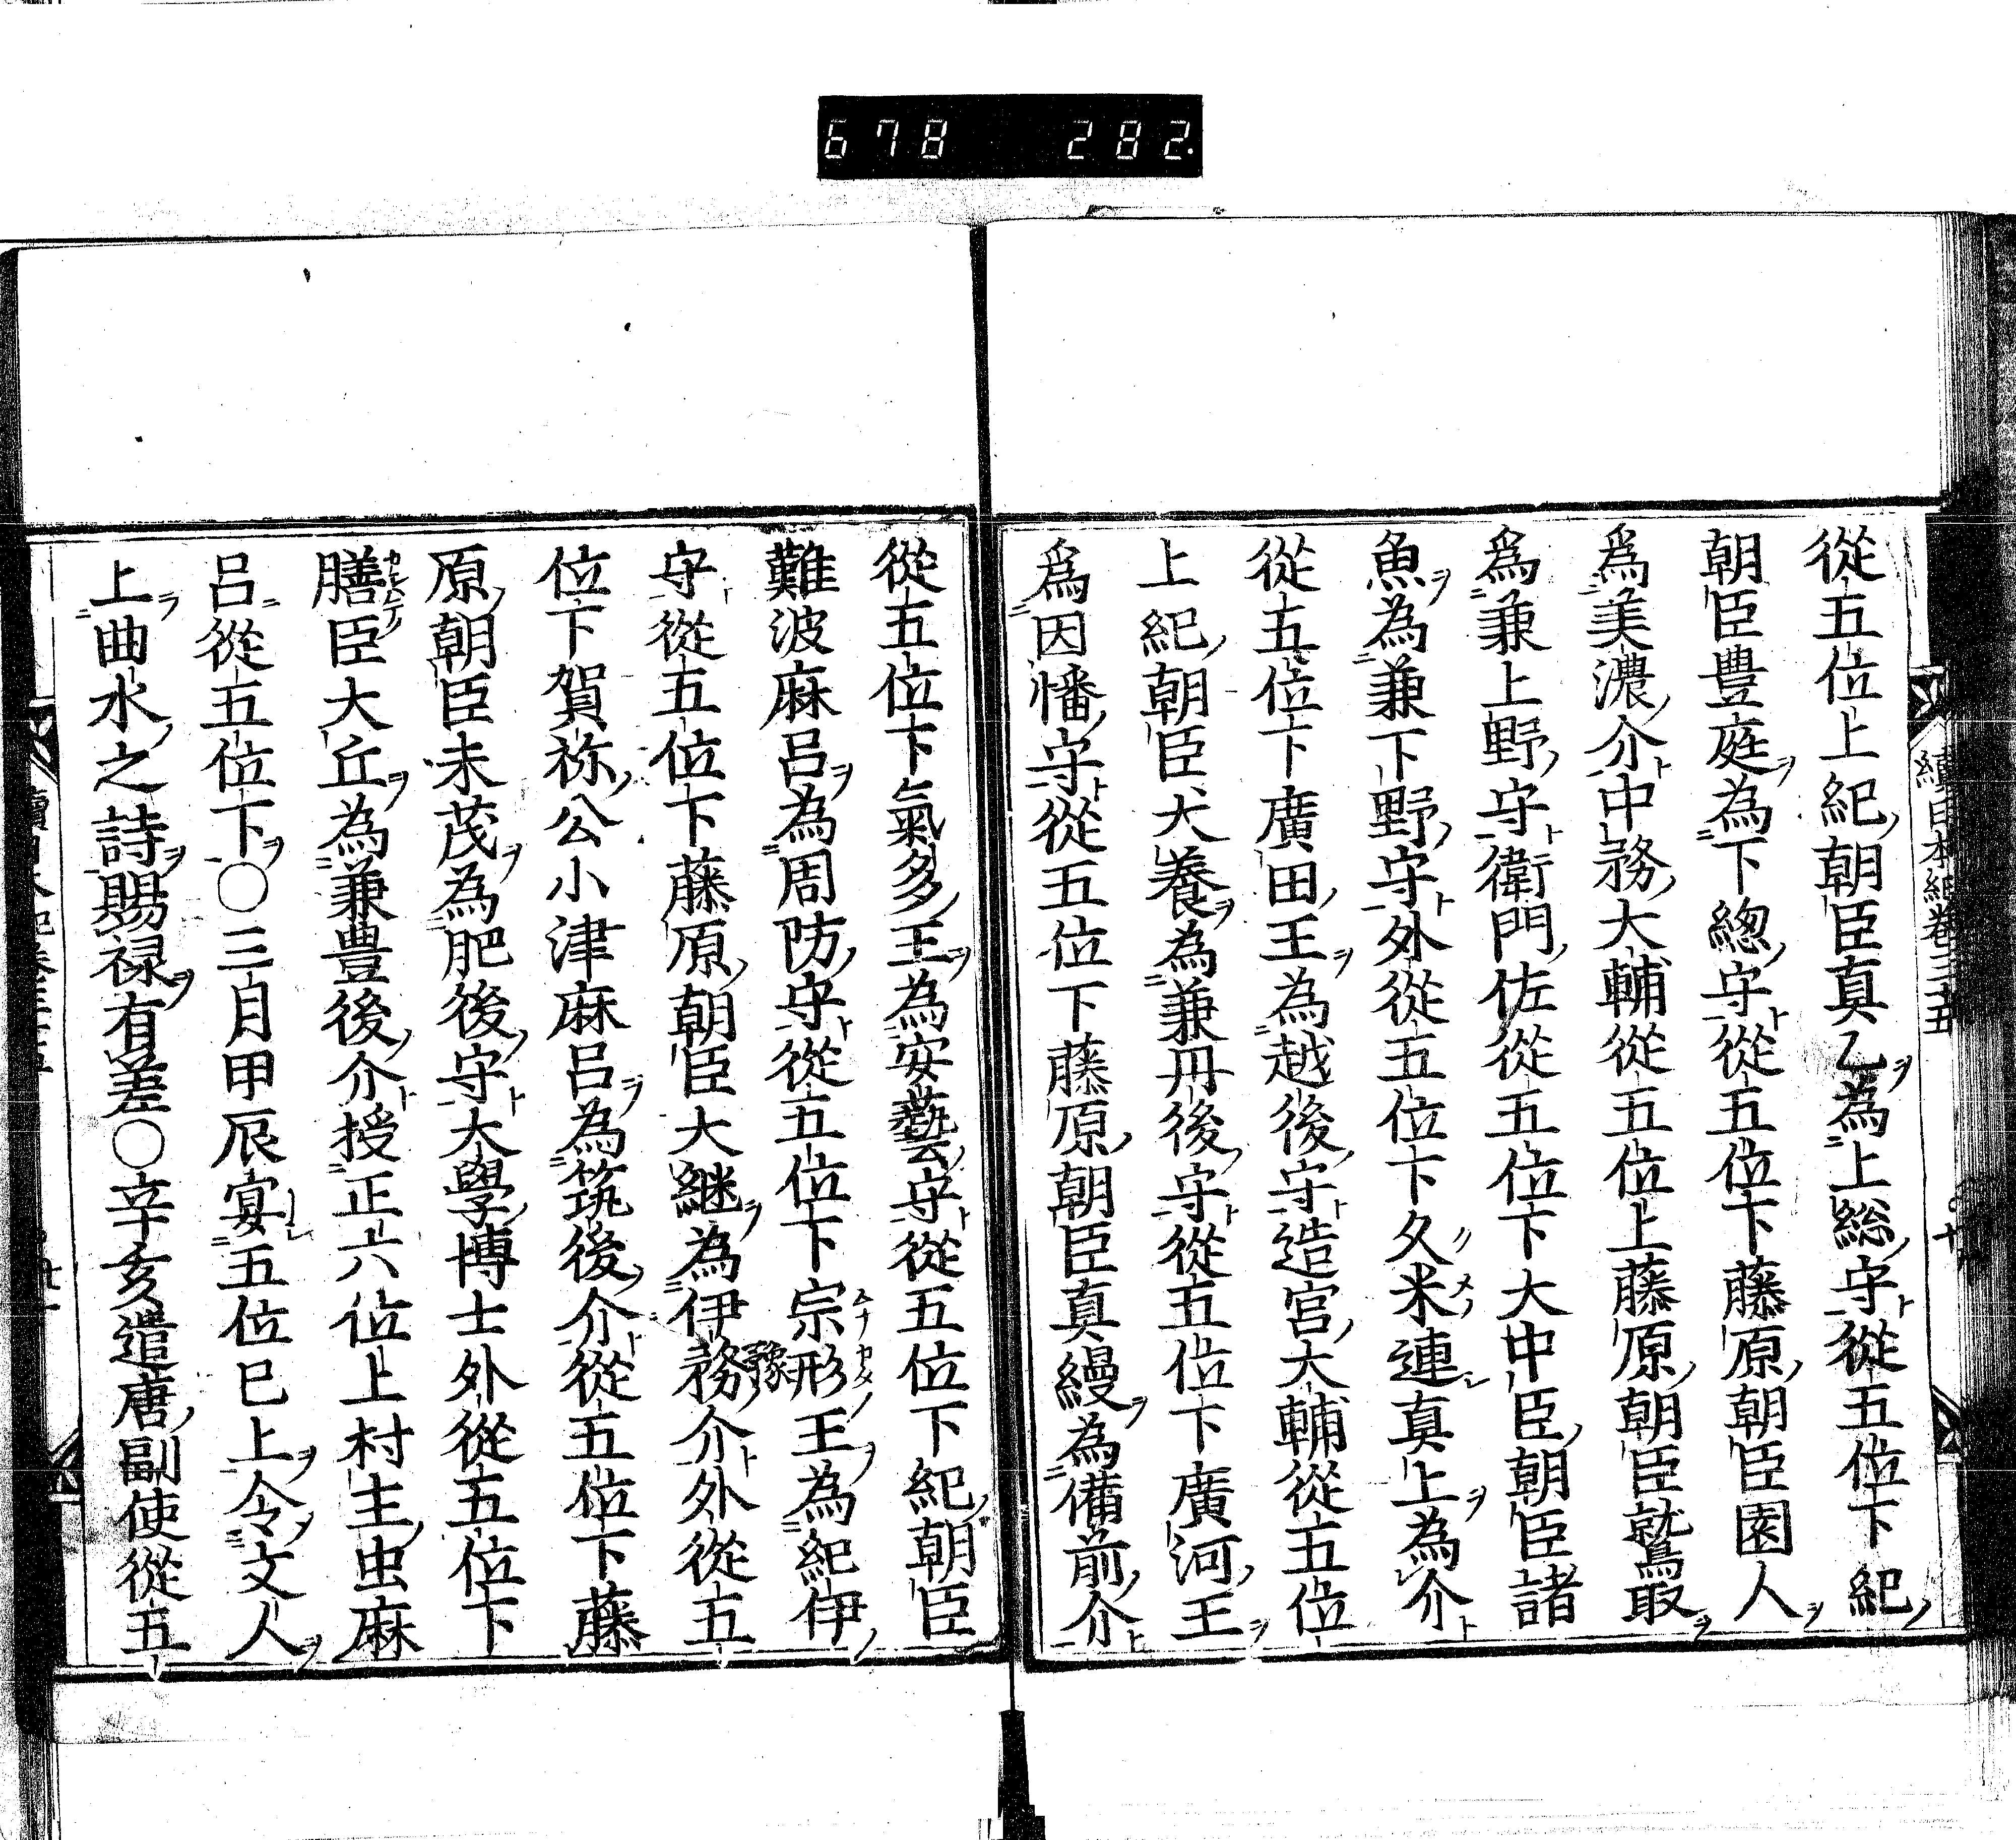 678 282.
續日本紀卷三十五
從五位上紀朝臣真乙ヲ為上総守從五位下紀
朝臣豊庭ヲ為下總守從五位下藤原朝臣園人ヲ
爲美濃介中務大輔從五位上藤原朝臣鷲取ヲ
爲兼上野守衛門佐從五位下大中臣朝臣諸
魚ヲ為兼下野守外從五位下久米連真上ヲ為介
從五位下廣田王ヲ為越後守造宮大輔從五位
上紀朝臣犬養ヲ為兼丹後守從五位下廣河王ヲ
爲因幡守從五位下藤原朝臣真縵ヲ為備前介
從五位下氣多王ヲ為安藝守從五位下紀朝臣
難波麻呂ヲ為周防守從五位下宗形王ヲ為紀伊
守從五位下藤原朝臣大継ヲ為伊務豫介外從五
位下賀祢公小津麻呂ヲ為筑後介從五位下藤
原朝臣末茂ヲ為肥後守大學博士外從五位下
膳臣大丘ヲ為兼豊後介授正六位上村主虫麻
呂從五位下ヲ○三月甲辰宴五位已上ヲ令文人ヲ
上曲水之詩ヲ賜禄ヲ有差○辛亥遣唐副使從五